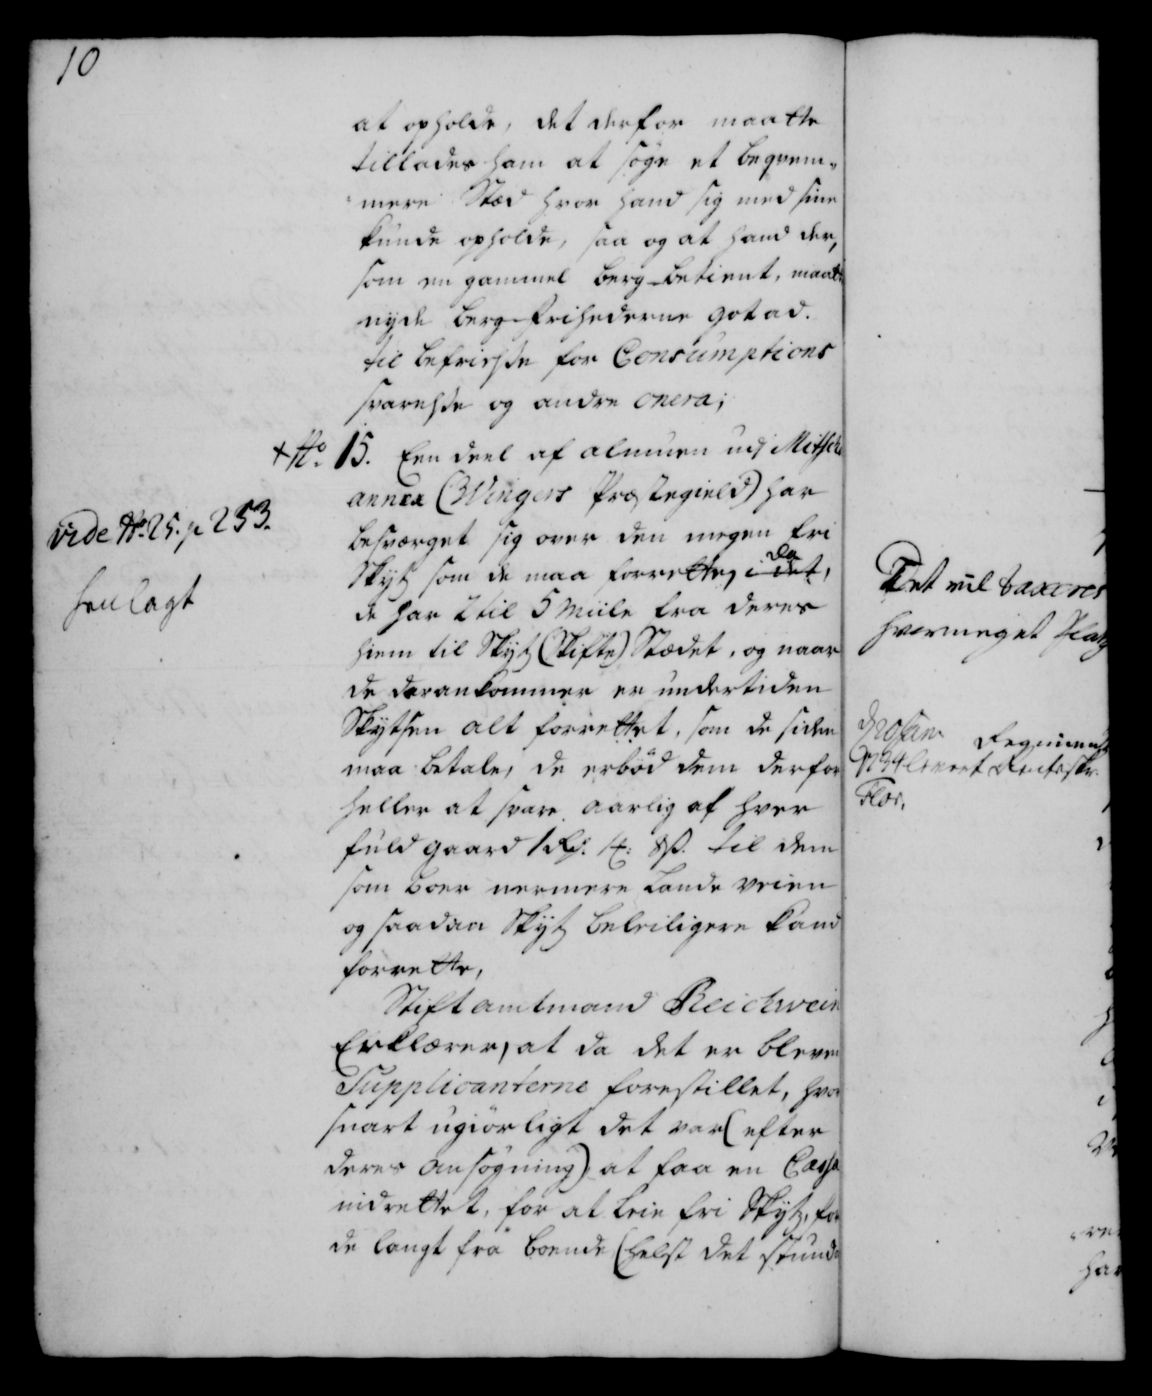 10
at opholde, det derfor maatte
tillades ham at søge et beqvem-
mere Stæd hvor hand sig med sine
kunde opholde, saa og at hand der,
som en gammel Berg-betient, maatte
nyde Berg-friehederne got ad.
til befrielse for Consumptions
svarelse og andre onera;
+ No. 15. Een deel af almuen udj
annex (Wingers Præstegield) har
besværget sig over den megen fri
Skytz som de maa forrette, i det, da
de har 2 til 5 Miile fra deres
hiem til Skytz (Skifte) Stædet, og naar
de derankommer er undertiden
Skytsen alt forrettet, som de siden
maa betale, de erbød dem derfor
heller at svare aarlig af hver
fuld gaard 1 til dem
som boer nermere Lande veien
og saadan Skytz beleiligere kand
forrette,
Stiftamtmand Reichwein
Erklærer, at da det er bleven
Supplicanterne forestillet, hvor
snart ugiørligt det var (efter
deres Ansøgning) at faa en Cassa
indrettet, for at leie fri Skytz, for
de langt fra boende (helst det stunde
vide No. 25. p 253.
henlagt
Det vil taxeres
hvormeget